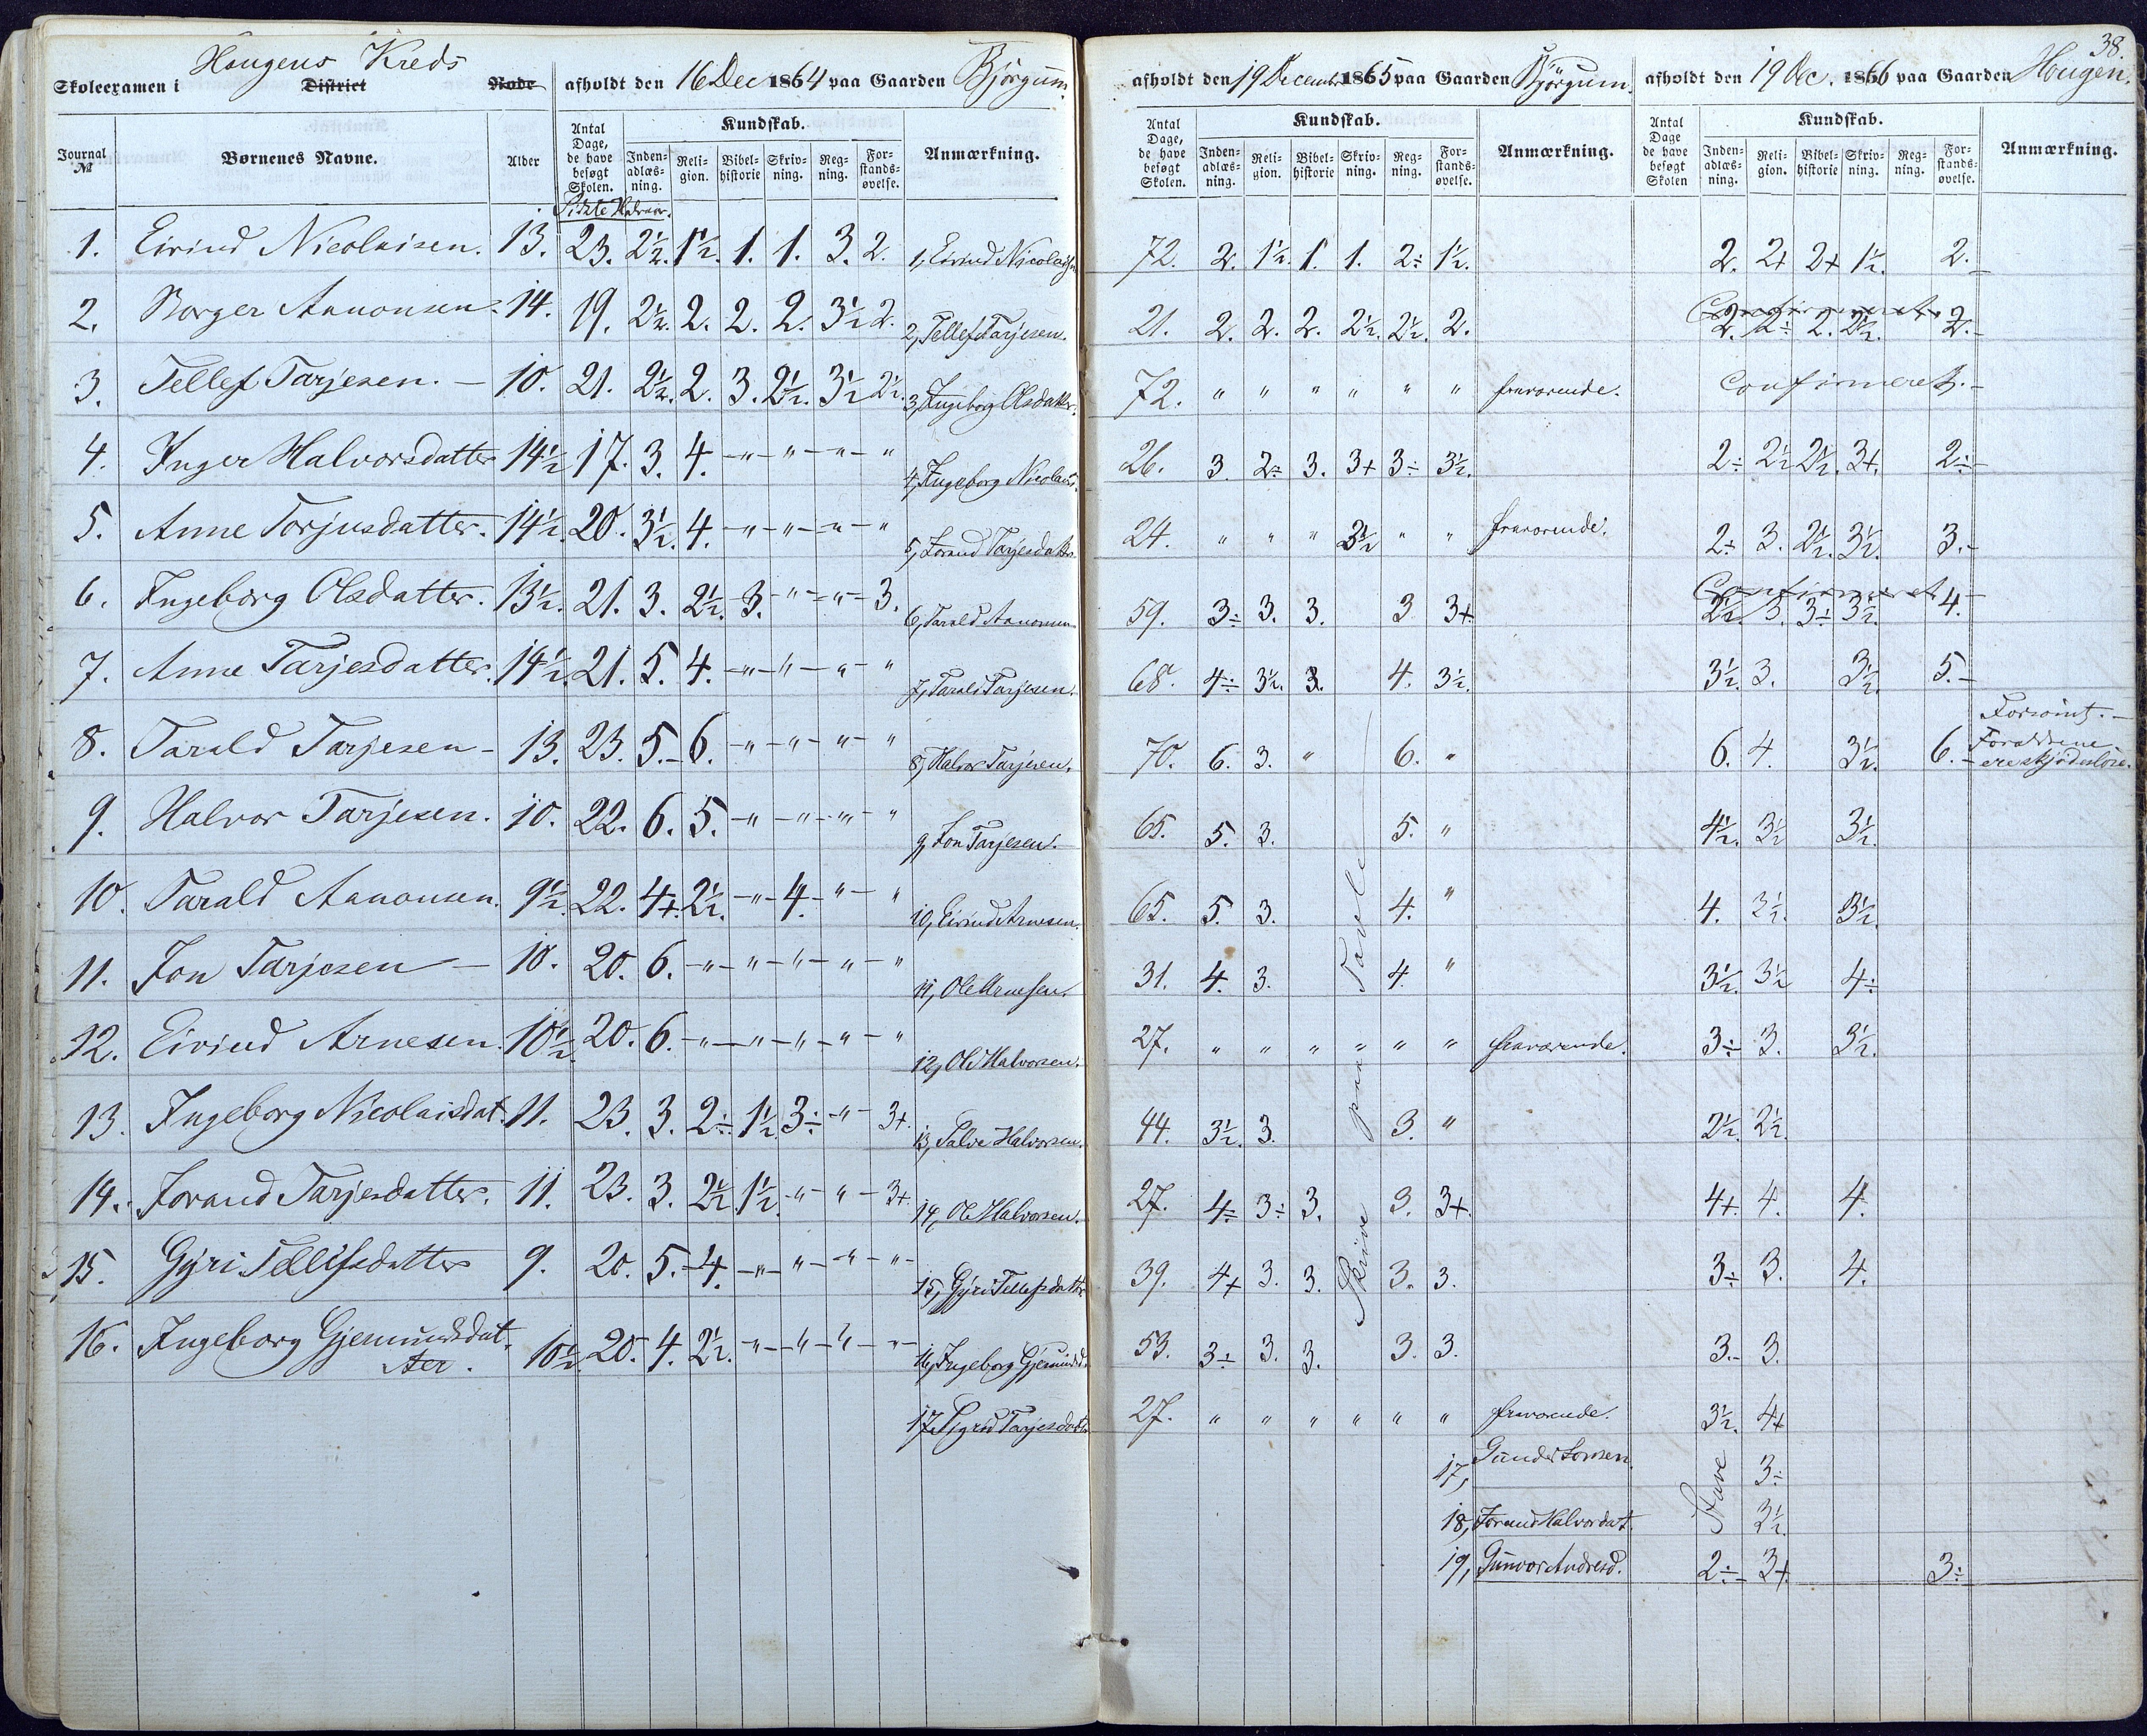 38.
Skoleexamen i Hougens Kreds District Rode afholdt den 16 Dec 1864 paa Gaarden Bjørgum. afholdt den 19 December 1865 paa Gaarden Bjørgum. afholdt den 19 Dec. 1866 paa Gaarden Hougen.
Journal № Børnenes Navne. Alder Antal Dage, de have besøgt Skolen. Kundskab. Inden-adlæs-ning. Reli-gion. Bibel-historie Skriv-ning. Reg-ning. For-stands-øvelse. Anmærkning. Antal Dage, de have besøgt Skolen. Kundskab. Inden-adlæs-ning. Reli-gion. Bibel-historie Skriv-ning. Reg-ning. For-stands-øvelse. Anmærkning. Antal Dage de have besøgt Skolen Kundskab. Inden-adlæs-ning. Reli-gion. Bibel-historie Skriv-ning. Reg-ning. For-stands-øvelse. Anmærkning.
Sidste Halvaar.
1. Eivind Nicolaisen. 13. 23. 2½. 1½. 1. 1. 3. 2. 1, Eivind Nicolaisen 72. 2. 1½. 1. 1. 2÷ 1½. 2. 2+ 2+ 1½. 2.
2. Borger Aanonsen. 14. 19. 2½. 2. 2. 2. 3½ 2. 2, Tellef Tarjesen. 21. 2. 2. 2. 2½. 2½. 2. Confirmeret. 2. 2÷ 2. 2½. 2.
3. Tellef Tarjesen. – 10. 21. 2½. 2. 3. 2½. 3½ 2½. 3, Ingeborg Olsdatter. 72. " " " " " " fraværende. Confirmeret. –
4. Inger Halvorsdatter 14½ 17. 3. 4. – " – " – " – " 4, Ingeborg Nicolais. 26. 3. 2÷ 3. 3+ 3÷ 3½. 2÷ 2½ 2½. 3+. 2÷
5. Anne Torjusdatter. 14½. 20. 3½. 4. – " – " – " – " 5, Jorand Tarjesdatter. 24. " " " 3½ " " fraværende. 2÷ 3. 2½. 3½. 3.
6. Ingeborg Olsdatter. 13½. 21. 3. 2½. 3. – " – " – 3. 6, Tarald Aanonsen 59. 3÷ 3. 3. 3 3+ Confirmeret 2½. 3. 3÷ 3½. 4.
7. Anne Tarjesdatter. 14½. 21. 5. 4. – " – " – " – " 7, Tarald Tarjesen. 68. 4÷ 3½. 3. 4. 3½. 3½. 3. 3½. 5.
8. Tarald Tarjesen – 13. 23. 5. – 6. – " – " – " – " 8, Halvor Tarjesen. 70. 6. 3. " 6. " 6. 4. 3½. 6. Forsømt. – Forældrene ere skjødesløse.
9. Halvor Tarjesen. 10. 22. 6. 5. – " – " – " – " 9, Jon Tarjesen. 65. 5. 3. 5. " 4½. 3½ 3½.
10. Tarald Aanonsen. 9½. 22. 4+. 2½. – " – 4. – " – " 10, Eivind Arnesen. 65. 5. 3. 4. " 4. 3½. 3½.
11. Jon Tarjesen – 10. 20. 6. – " – " – " – " – " 11, Ole Arnesen. 31. 4. 3. 4. " 3½. 3½ 4÷
12. Eivind Arnesen. 10½ 20. 6. – " – " – " – " – " 12, Ole Halvorsen. 27. " " " " " " fraværende. 3÷ 3. 3½.
13. Ingeborg Nicolaisdat. 11. 23. 3. 2÷ 1½. 3÷ – " – 3+. 13, Salve Halvorsen. 44. 3½. 3. 3. " 2½. 2½.
14. Jorand Tarjesdatter. 11. 23. 3. 2½ 1½. – " – " – 3+. 14, Ole Halvorsen. 27. 4÷ 3÷ 3. 3. 3+. 4+. 4. 4.
15. Gyri Tellefsdatter 9. 20. 5. – 4. – " – " – " – " – 15, Gyri Tellefsdatter 39. 4+ 3. 3. 3. 3. 3÷ 3. 4.
16. Ingeborg Gjemundsdatter. 10½. 20. 4. 2½. – " – " – " – " – 16, Ingeborg Gjemundsd. 53. 3÷ 3. 3. 3. 3. 3.– 3.
Skrive paa Tavle
17, Sigrid Tarjesdatter 27. " " " " " " fraværende. 3½. 4+
17, Gunder 3÷
Stave
18, Jorand Halvordat. 3½.
19, Gunvor Andresd. 2÷ 3+. 3÷